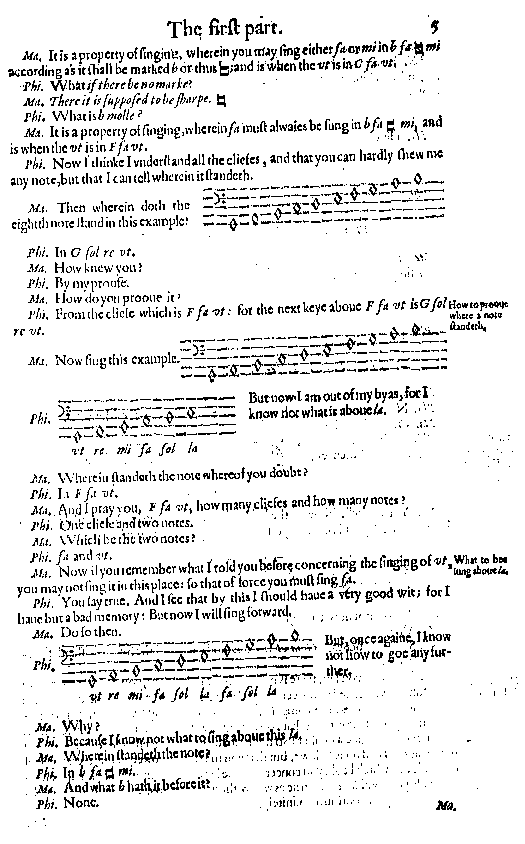 The first part. 5
Ma. It is a property of singing, wherein you may sing either fa or mi in b fa ♮ mi
according as it shall be marked b or thus ♮: and is when the vt is in G sol re vt.
Phi. What if there be no marke?
Ma. There it is supposed to be sharpe. ♮
Phi. What is b molle?
Ma. It is a property of singing, wherein fa must alwaies be sung in b fa ♮ mi, and
is when the vt is in F fa vt.
Phi. Now I thinke I vnderstand all the cliefes, and that you can hardly shew me
any note, but that I can tell wherein it standeth.
Ma. Then wherein doth the
eighth note stand in this example?
Phi. In G sol re vt.
Ma. How knew you?
Phi. By my proofe.
Ma. How do you prooue it?
Phi. From the cliefe which is F fa vt: for the next keye aboue F fa vt is G sol
re vt.
How to prooue
where a note
standeth.
Ma. Now sing this example.
Phi.
But now I am out of my byas, for I
know not what is aboue la.
vt re mi fa sol la
Ma. Wherein standeth the note whereof you doubt?
Phi. In F fa vt.
Ma. And I pray you, F fa vt, how many cliefes and how many notes?
Phi. One cliefe and two notes.
Ma. Which be the two notes?
Phi. fa and vt.
Ma. Now if you remember what I told you before concerning the singing of vt,
you may not sing it in this place: so that of force you must sing fa.
What to bee
sung aboue la.
Phi. You say true. And I see that by this I should haue a very good wit, for I
haue but a bad memory: But now I will sing forward.
Ma. Do so then.
Phi.
But once againe, I know
not how to goe any fur-
ther.
vt re mi fa sol la fa sol la
Ma. Why?
Phi. Because I know not what to sing aboue this la.
Ma. Wherein standeth the note?
Phi. In b fa ♮ mi.
Ma. And what b hath it before it?
Phi. None.
Ma.